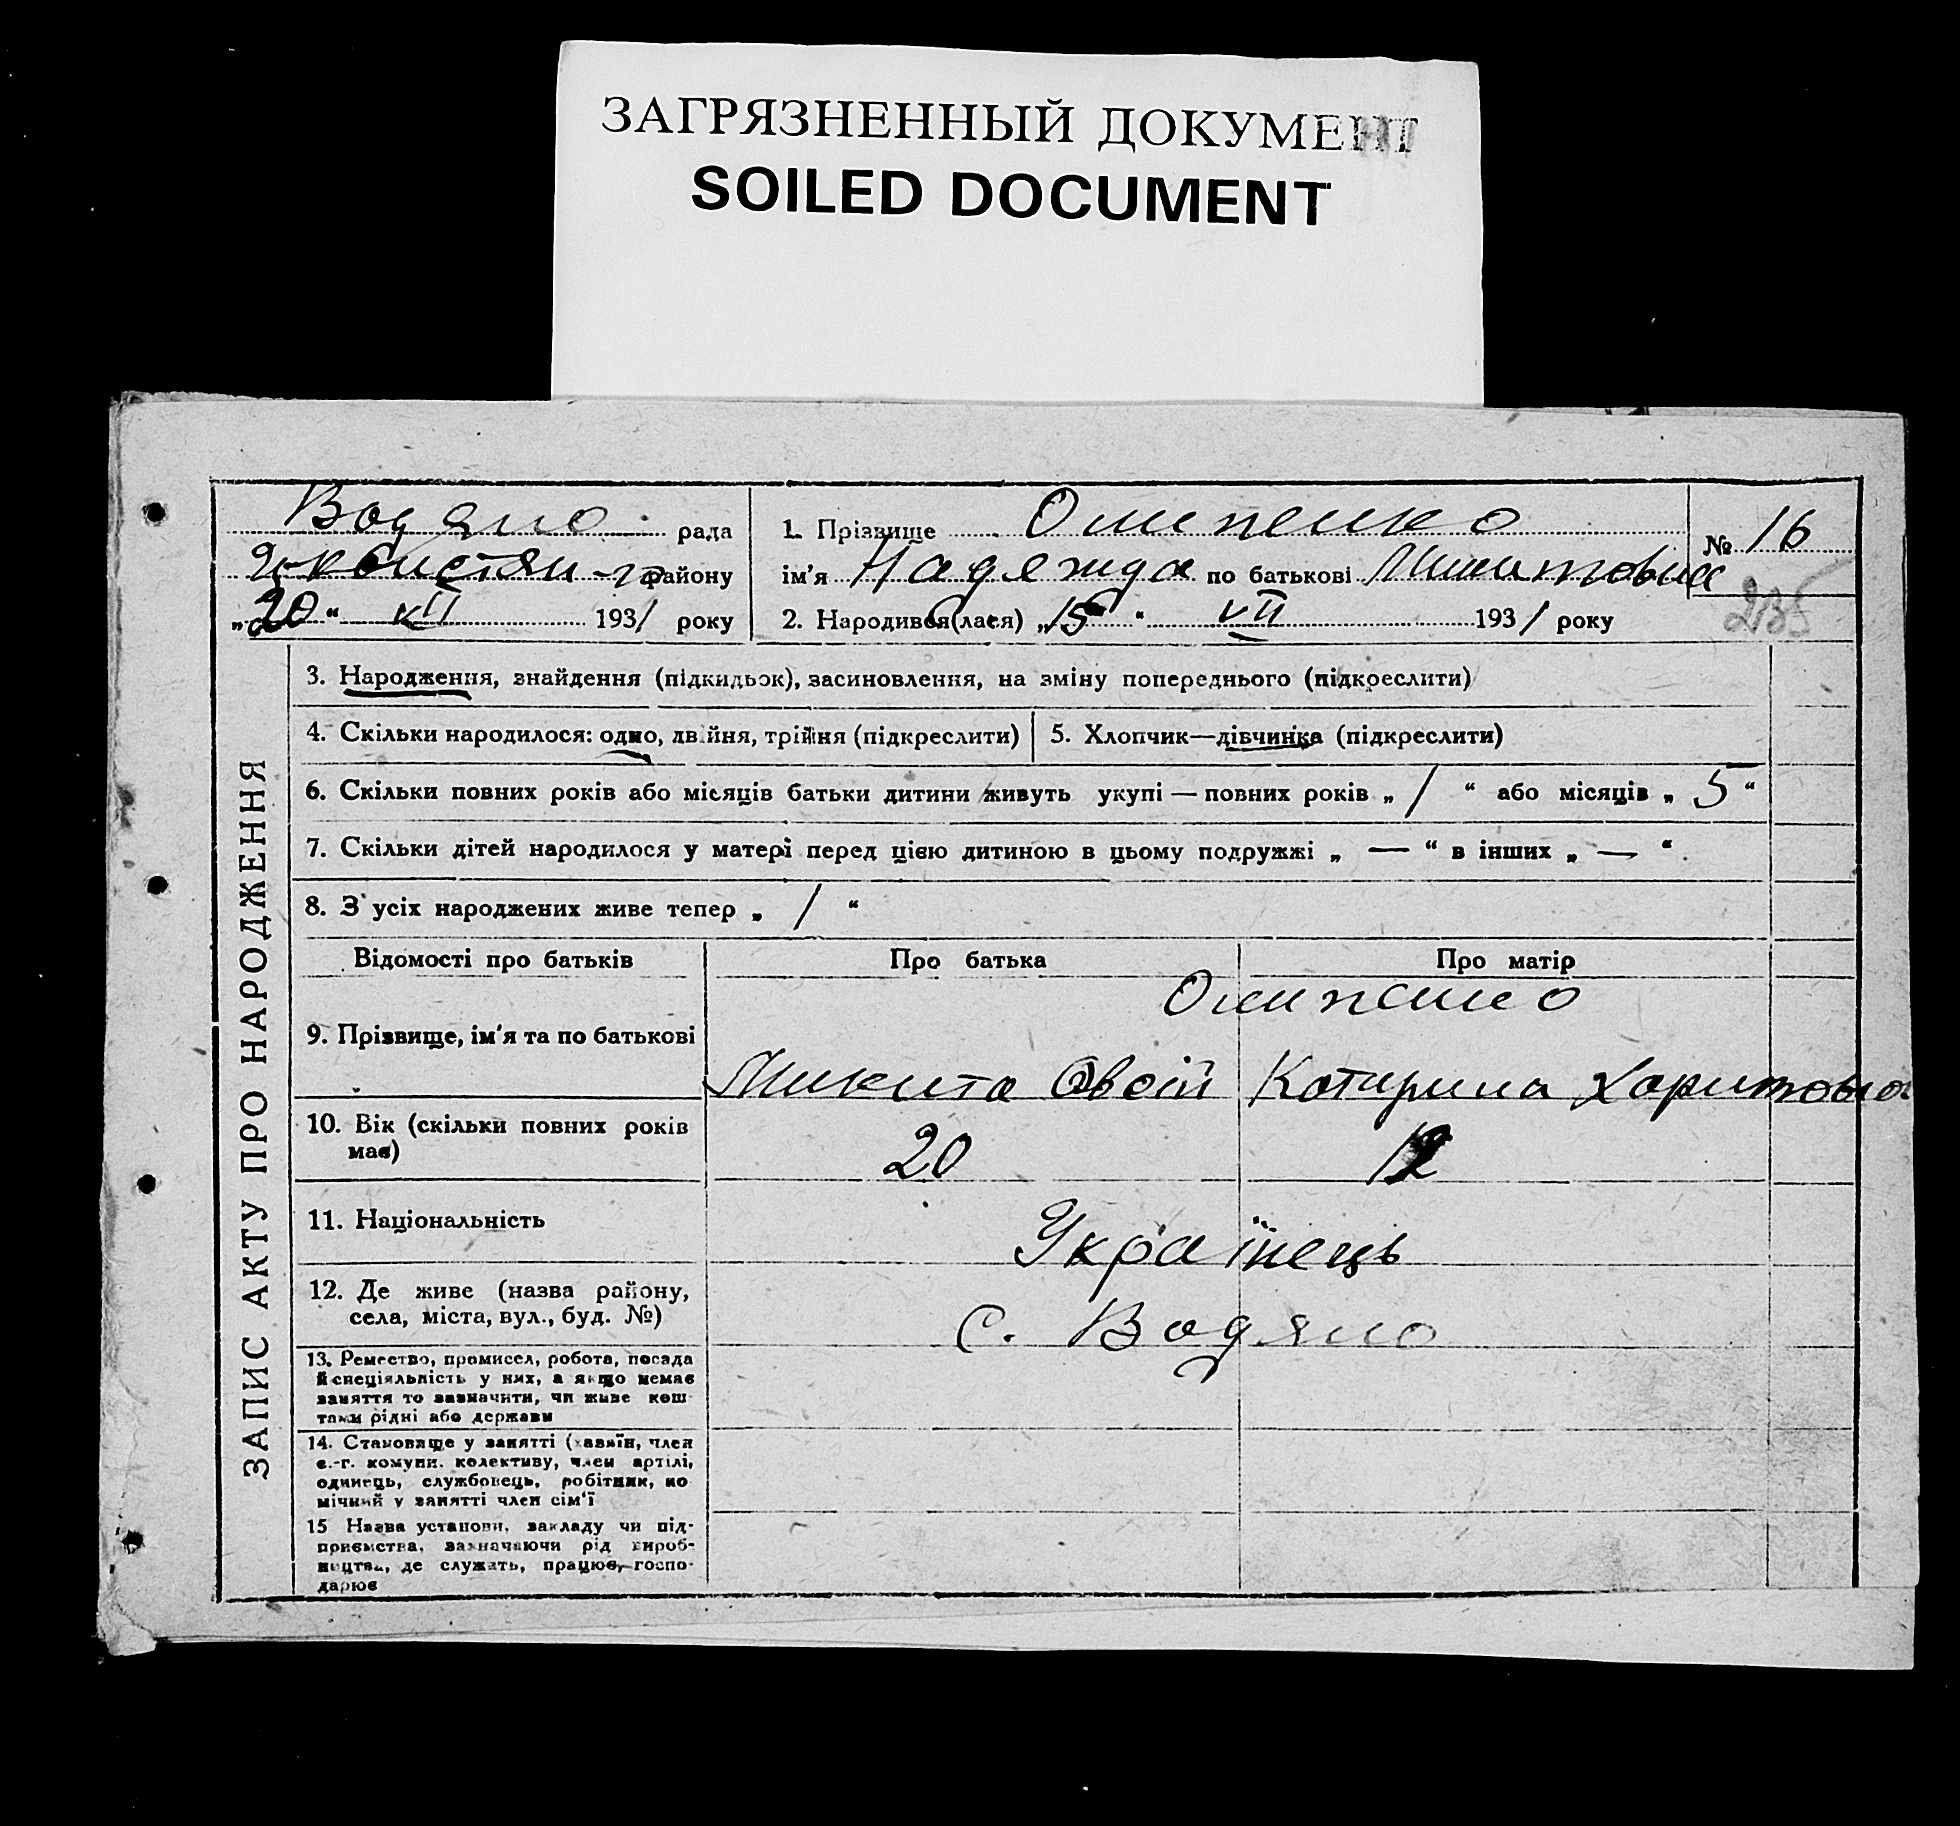 ЗАГРЯЗНЕННЫЙ ДОКУМЕНТ
SOILED DOCUMENT
Водяно рада
району
„20“ VII 1931 року
1. Прізвище Олипенко
ім'я Надежда по батькові Микитовна
2. Народився(лася) „15“ VII 1931 року
№ 16
235
ЗАПИС АКТУ ПРО НАРОДЖЕННЯ
3. Народження, знайдення (підкидьок), засиновлення, на зміну попереднього (підкреслити)
4. Скільки народилося: одно, двійня, трійня (підкреслити)
5. Хлопчик—дівчинка (підкреслити)
6. Скільки повних років або місяців батьки дитини живуть укупі — повних років „ 1 “ або місяців „ 5 “
7. Скільки дітей народилося у матері перед цією дитиною в цьому подружжі „ — “ в інших „ — “.
8. З усіх народжених живе тепер „ 1 “
Відомості про батьків Про батька Про матір
9. Прізвище, ім'я та по батькові
Олипенко
Микита Овсій Катирина Харитовна
10. Вік (скільки повних років
має)
20
11. Національність
Українець
12. Де живе (назва району,
села, міста, вул., буд. №)
с. Водяно
13. Ремество, промисел, робота, посада
й спеціяльність у них, а якщо немає
заняття то зазначити, чи живе кош-
тами рідні або держави
14. Становище у занятті (хазяїн, член
с.-г. комуни, колективу, член артілі,
одинець, службовець, робітник, по
мічний у занятті член сім'ї
15 Назва установи, закладу чи під-
приємства, зазначаючи рід вироб-
ництва, де служить, працює, госпо-
дарює